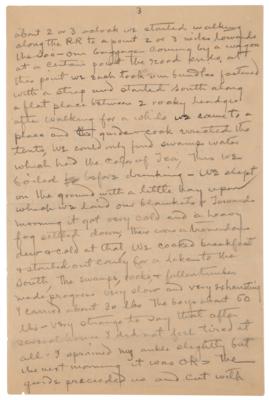 3
about 2 or 3 oclock we started walking
along the RR to a point 2 or 3 miles towards
the Soo - Our baggage coming by a wagon
at a certain point the road ends, at
this point we each took our bundles fastened
with a strap and started south along
a flat place between 2 rocky hedges
after walking for a while we came to a
place and the guide - cook erected the
tents We could only find swamp water
which had the color of tea, This we
boiled before drinking - We slept
on the ground with a little hay upon
which we laid our blankets & towards
morning it got very cold and a heavy
fog settled down, There was a tremendous
dew & cold at that We cooked breakfast
& started out early for a hike to the
South The swamps, rocks & fallen timber
made progress very slow and very exhausting
I carried about 30 lbs The boys about 60
lbs - very strange to say that after
several hours I did not feel tired at
all - I sprained my ankle slightly but
the next morning it was OK - The
guide preceded us and cut with